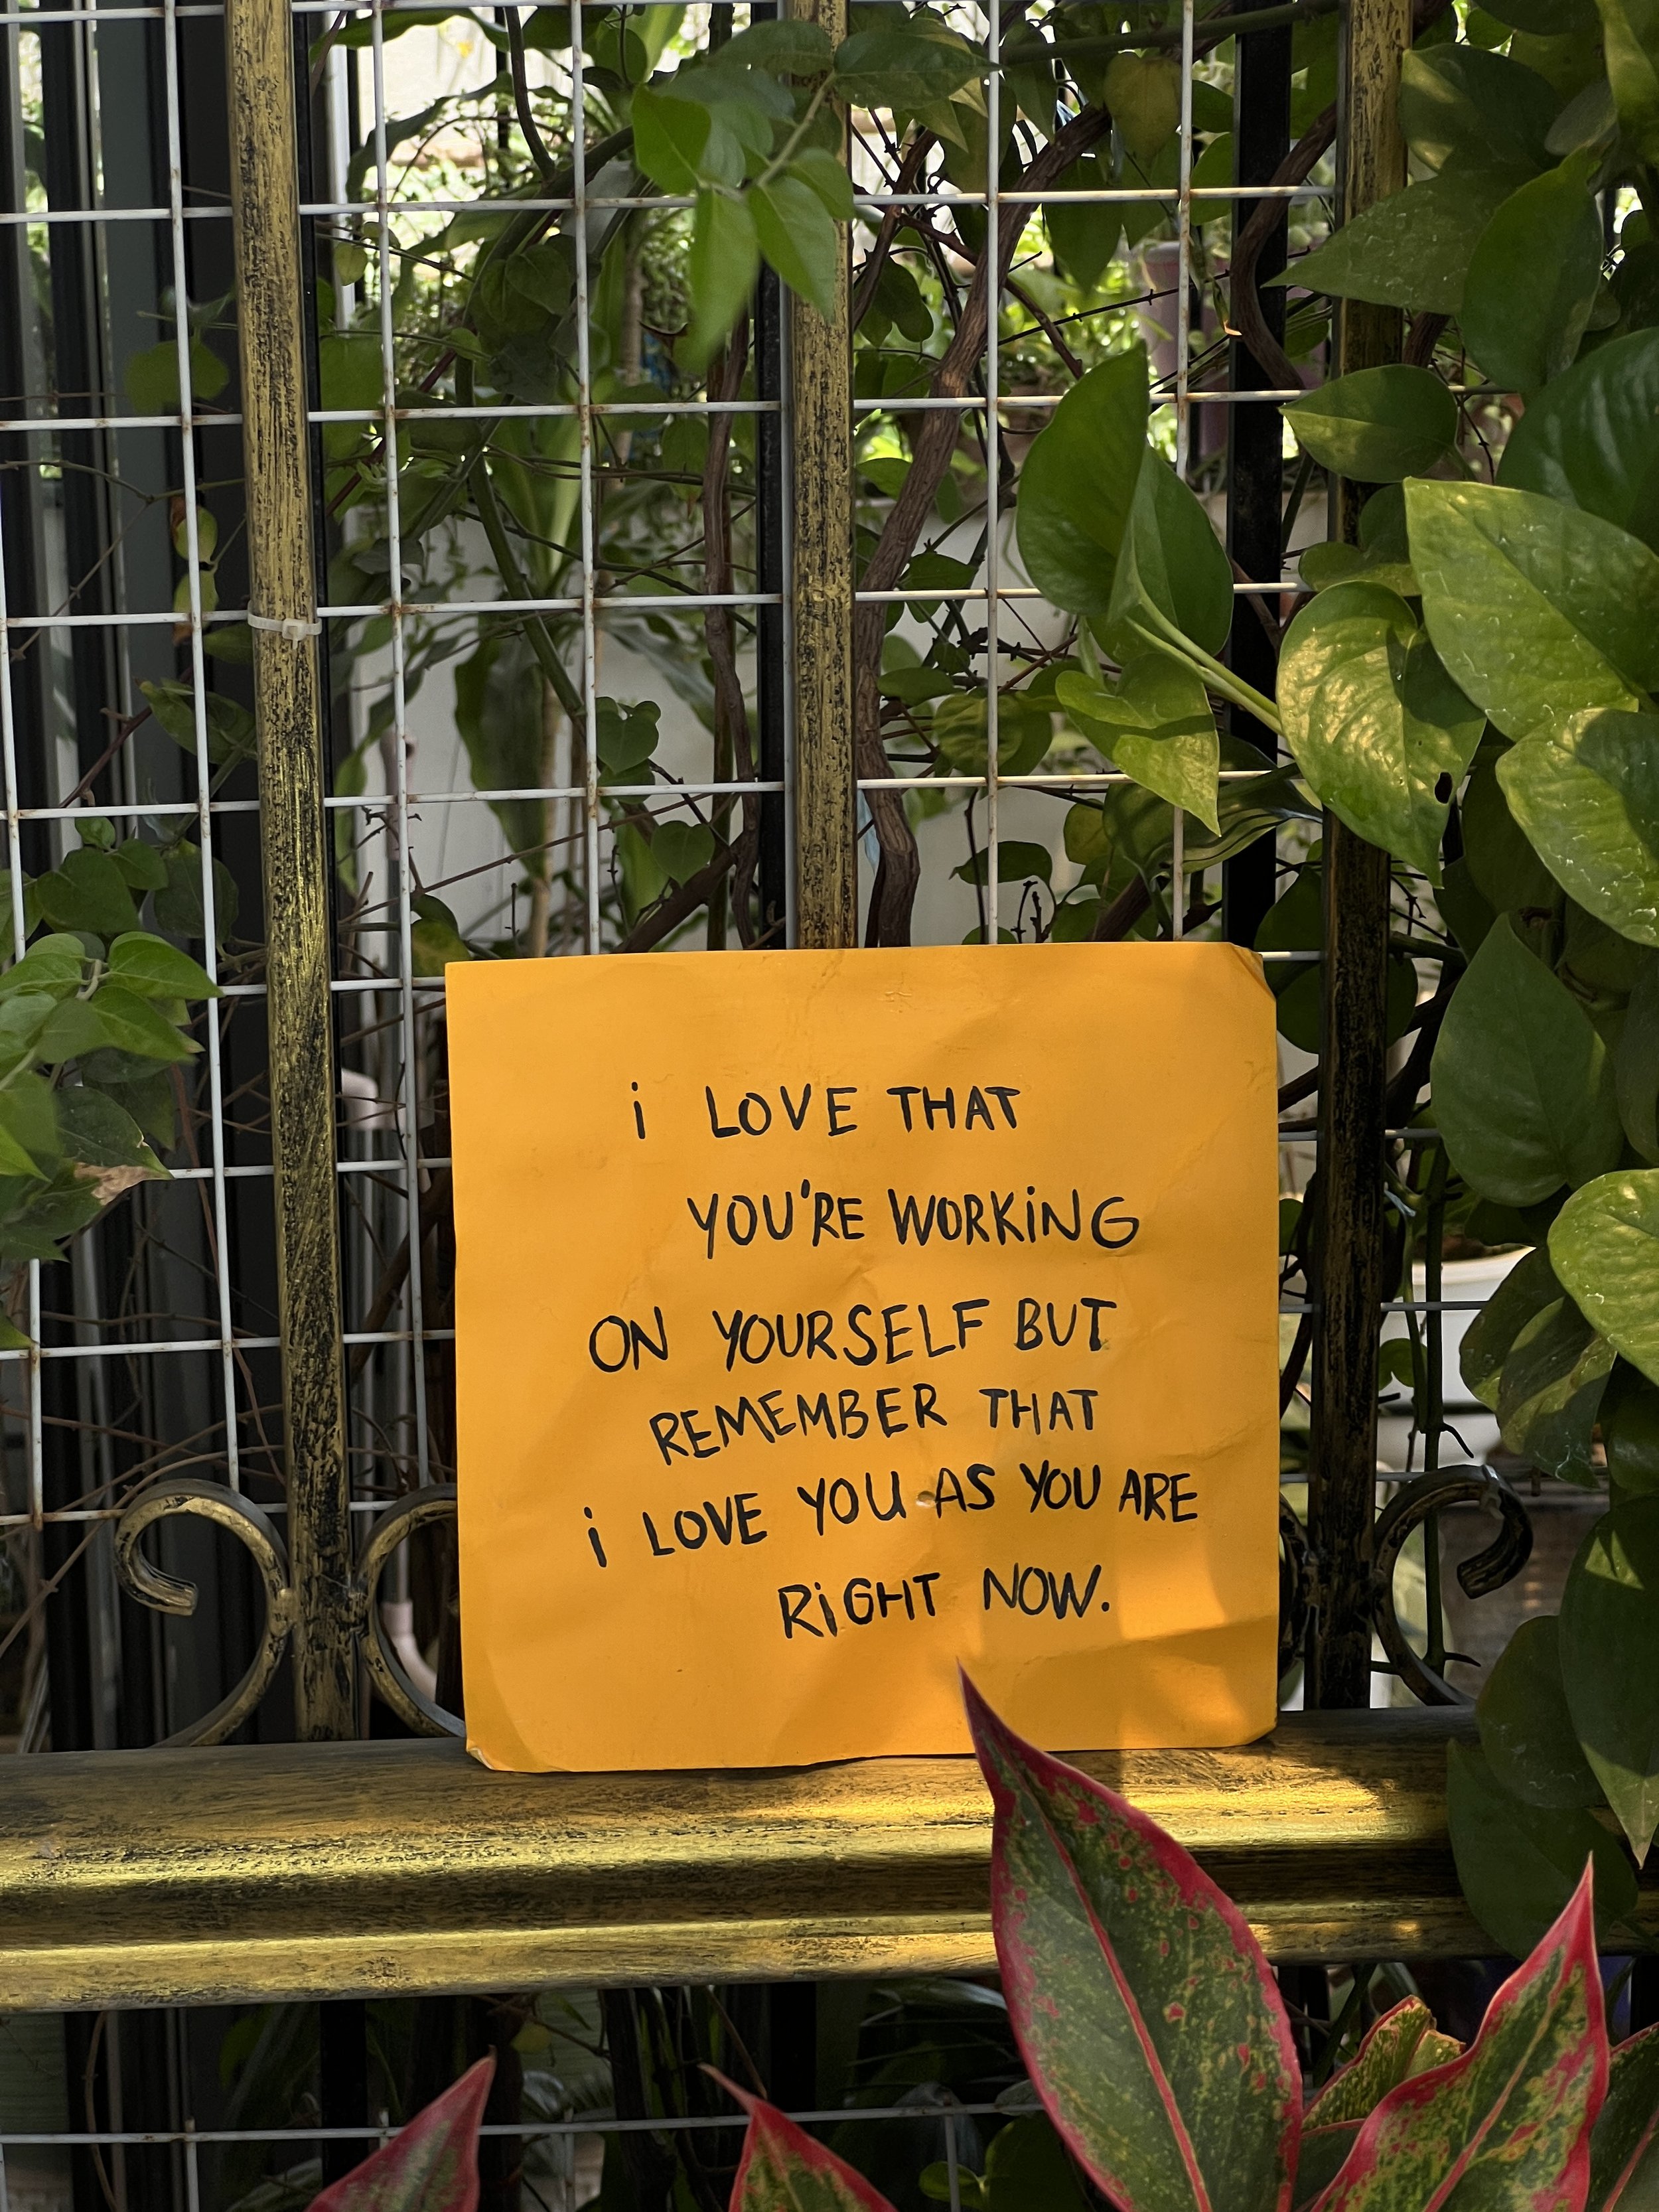 i LOVE THAT
YOU'RE WORKiNG
ON YOURSELF BUT
REMEMBER THAT
i LOVE YOU AS YOU ARE
RiGHT NOW.